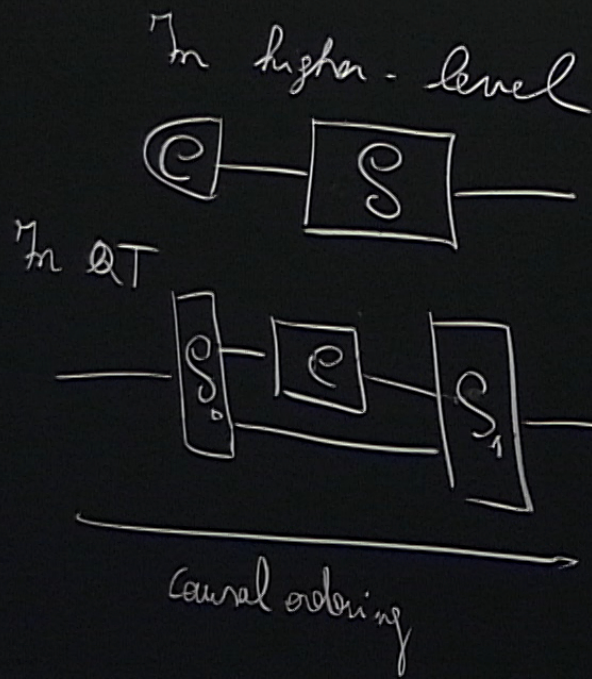 In higher-level
C S
In QT
S₀ C S₁
causal ordering